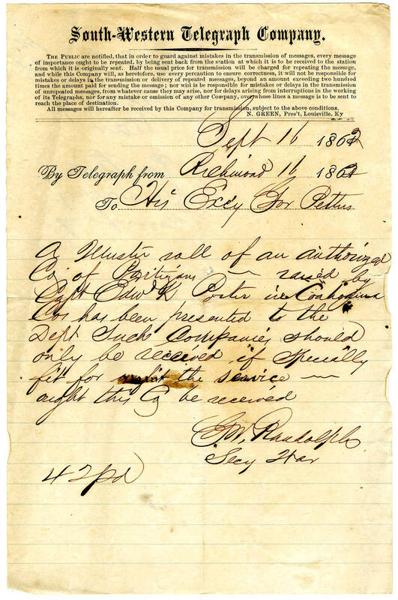 South-Western Telegraph Company.
THE PUBLIC are notified, that in order to guard against mistakes in the transmission of messages, every message
of importance ought to be repeated, by being sent back from the station at which it is to be received to the station
from which it is originally sent. Half the usual price for transmission will be charged for repeating the message,
and while this Company will, as heretofore, use every precaution to ensure correctness, it will not be responsible for
mistakes or delays in the transmission or delivery of repeated messages, beyond an amount exceeding two hundred
times the amount paid for sending the message; nor will it be responsible for mistakes or delays in the transmission of
unrepeated messages, from whatever cause they may arise, nor for delays arising from interruptions in the working
of its Telegraphs, nor for any mistake or omission of any other Company over whose lines a message is to be sent to
reach the place of destination.
All messages will hereafter be received by this Company for transmission, subject to the above conditions.
N. GREEN, Pres't, Louisville, Ky
Sept 16 1862
By Telegraph from Richmond 16 1862
To His Excy Gov Pettus
A Muster roll of an authorized
Co of Partizans raised by
Capt Edwd K, Porter in Coahoma
Co has been presented to the
Dept Such Companies should
only be received if specially
fit for the service
ought this Co be received
G.W. Randolph
Secy War
42 pd